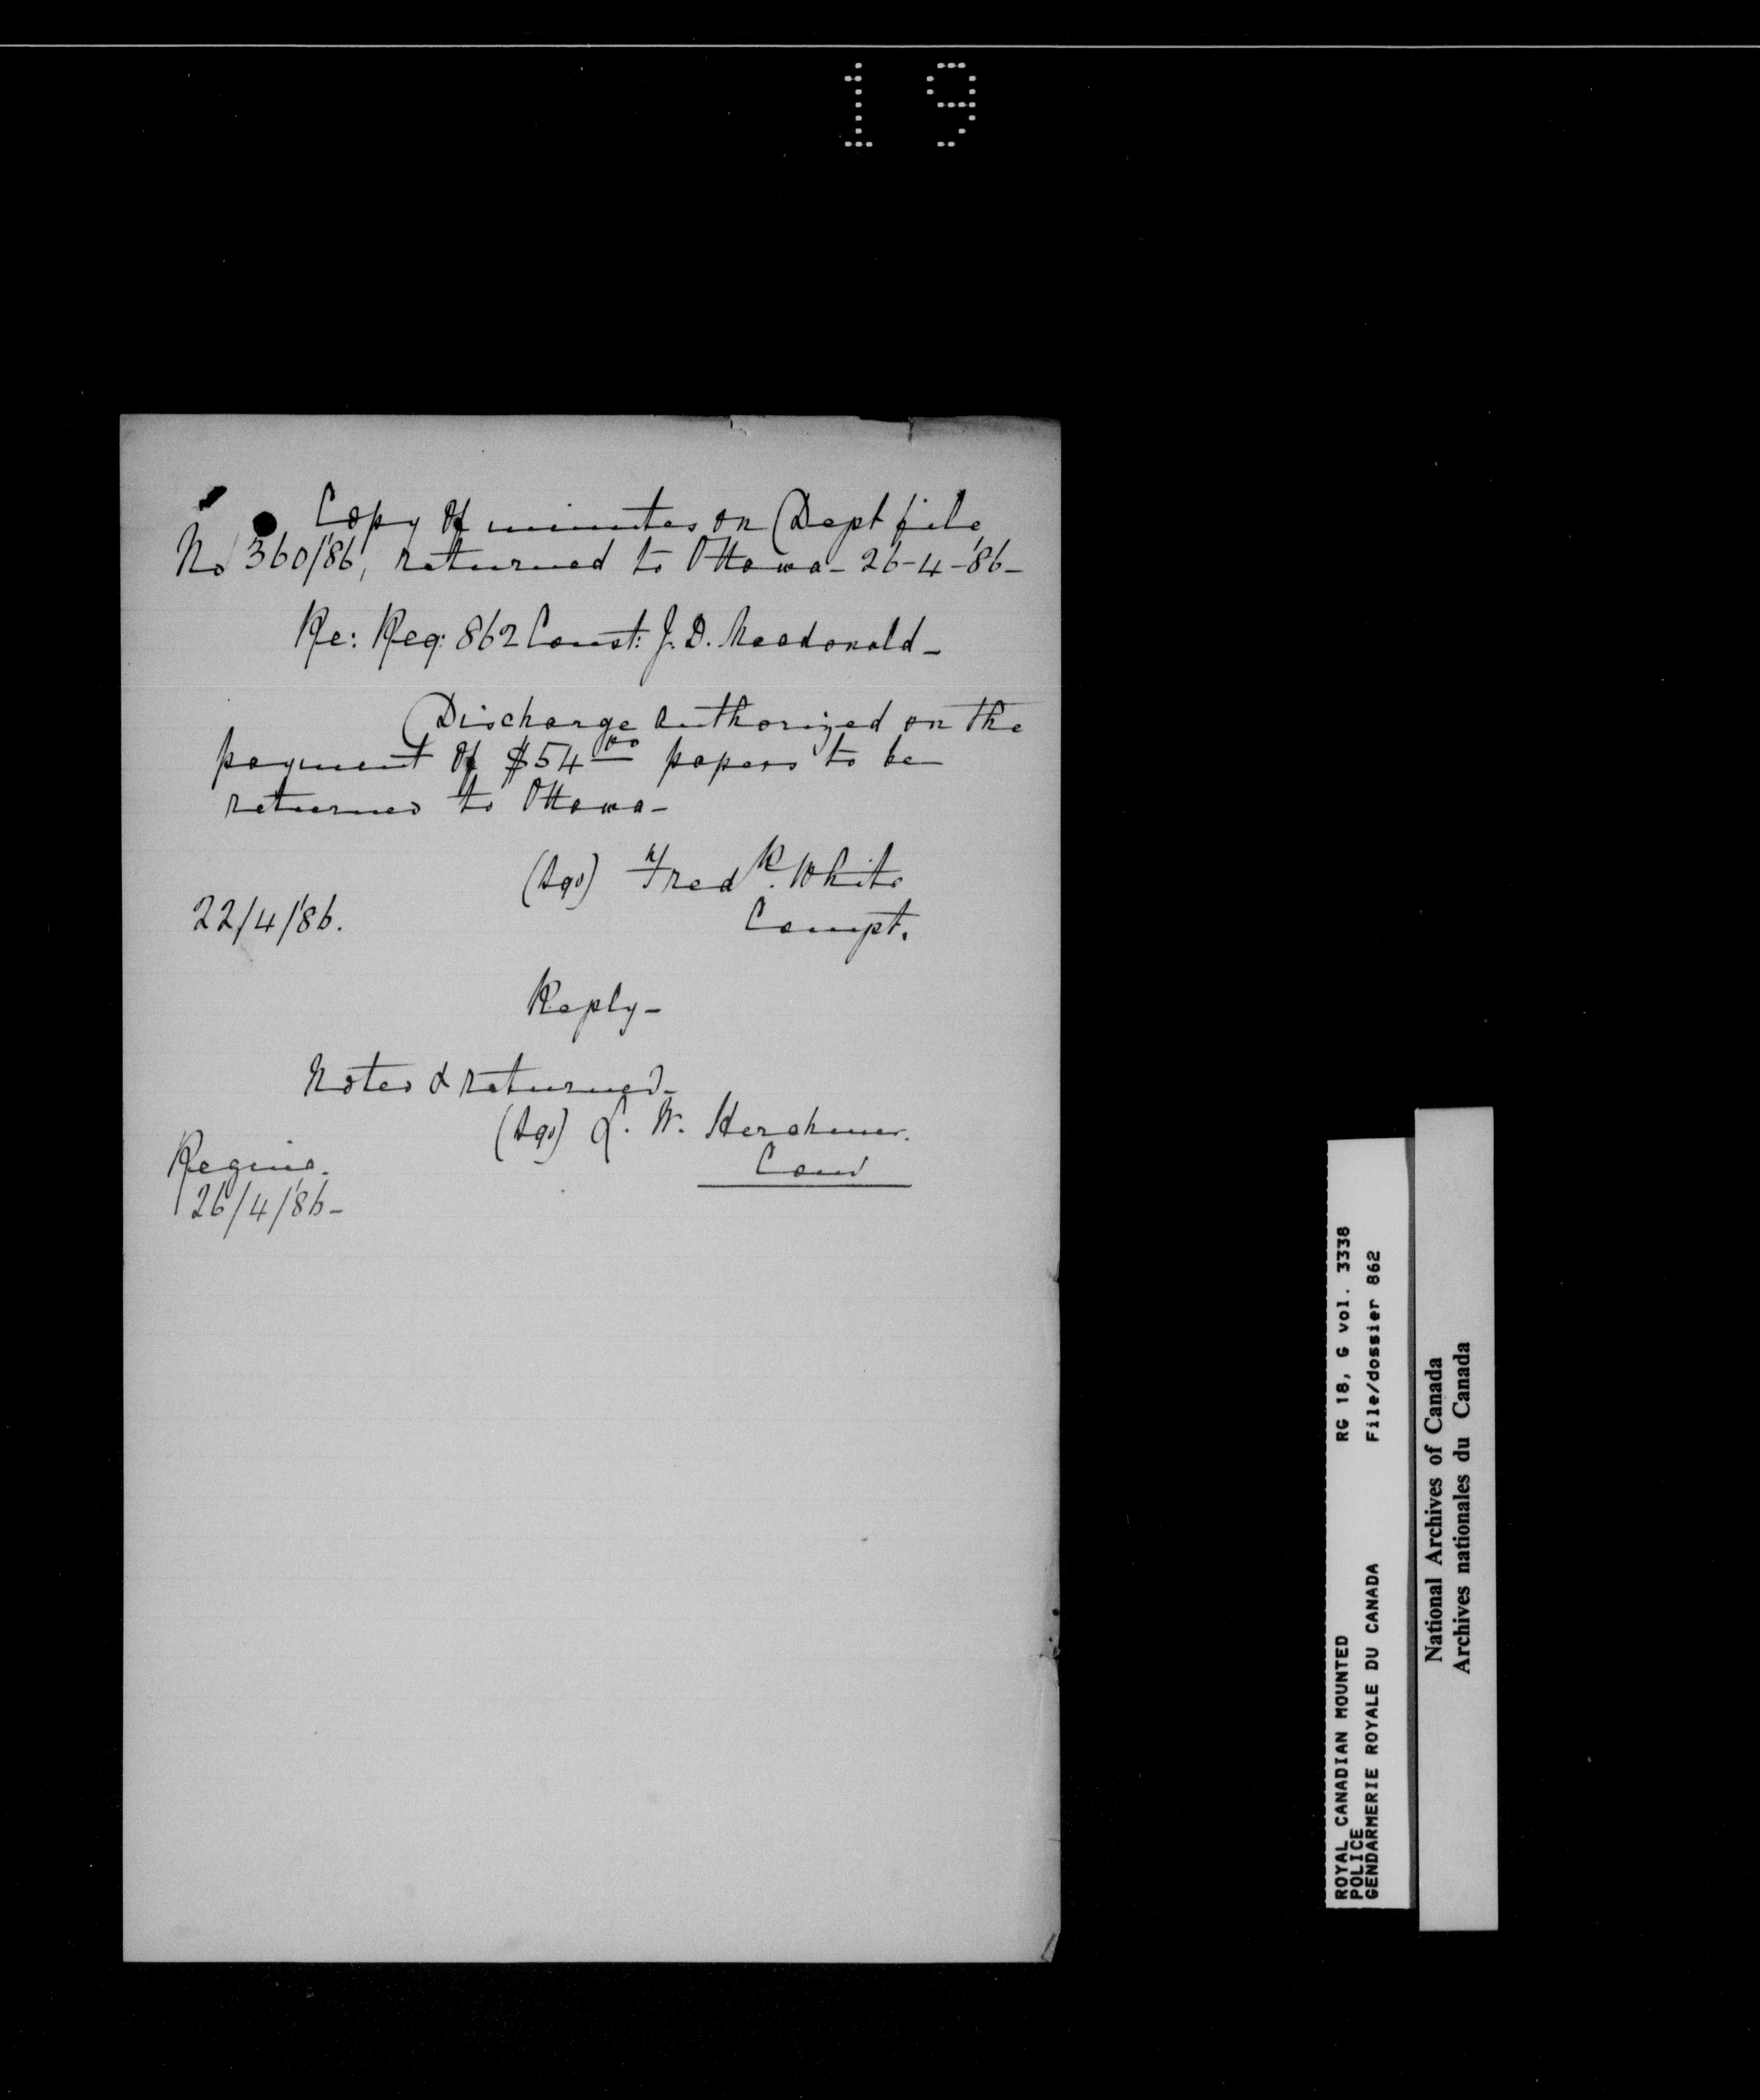 19
Copy of minutes on Dept file
No 360/86, returned to Ottawa - 26-4-86-
Re: Reg: 862 Const: J. D. Macdonald -
Discharge authorized on the
payment of $54 00 papers to be
returned to Ottawa -
(Sgd) Fred K. White
22/4/86.
Compt.
Reply -
Noted & returned -
(Sgd) L. W. Herchmer.
Regina.
Com
26/4/86-
ROYAL CANADIAN MOUNTED
POLICE
GENDARMERIE ROYALE DU CANADA
RG 18, G vol. 3338
File/dossier 862
National Archives of Canada
Archives nationales du Canada